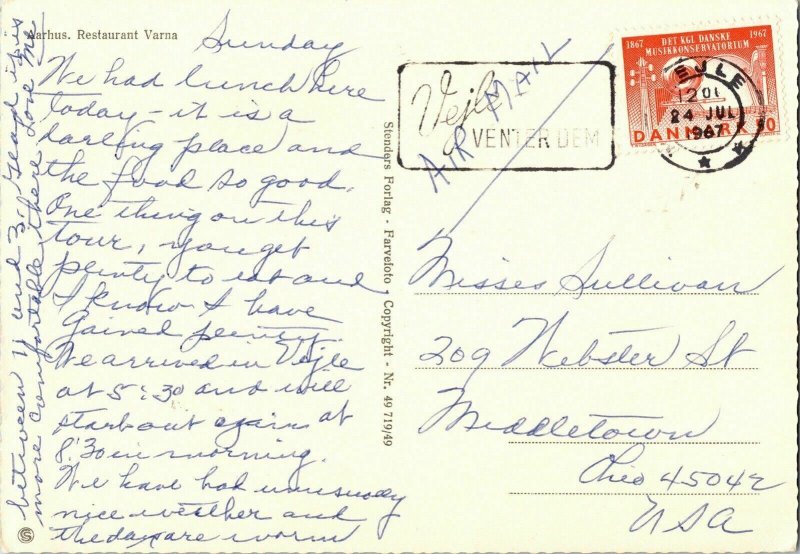 Aarhus. Restaurant Varna
Sunday
We had lunch here
today - it is a
darling place and
the food so good.
One thing on this
tour, you get
plenty to eat and
I know I have
gained plenty.
We arrived in Vejle
at 5:30 and will
start out again at
8:30 in morning.
We have had unusualy
nice weather and
the days are warm
between
more comfortable there. Love Me
Stenders Forlag - Farvefoto - Copyright - Nr. 49 719/49
Vejle
VENTER DEM
AIR MAIL
1867 DET KGL DANSKE 1967
MUSIKKONSERVATORIUM
DANMARK 90
EJLE
24 JUL
1967
Misses Sullivan
209 Webster St
Middletown
Ohio 45042
USA